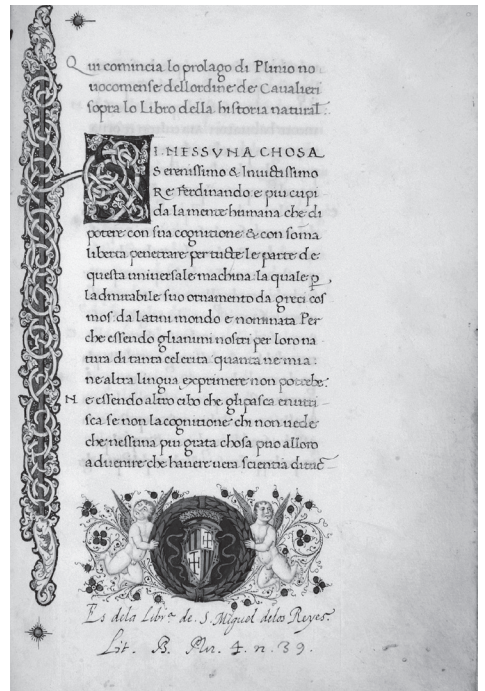 Qui comincia lo prolago di Plinio no
uocomense dellordine de Caualieri
sopra lo Libro della historia natural.
DI NESSVNA CHOSA
Serenissimo & Inuictissimo
Re Ferdinando e piu cupi
da la mente humana che di
potere con sua cognitione & con soma
liberta penetrare per tucte le parte de
questa uniuersale machina la quale p
ladmirabile suo ornamento da greci cos
mos da latini mondo e nominata Per
che essendo glianimi nostri per loro na
tura di tanta celerita quanta ne mia
ne altra lingua exprimere non potrebbe:
N e essendo altro cibo che gli pasca enutri
sca se non la cognitione chi non uede
che nessuna piu grata chosa puo alloro
aduenire che hauere uera scientia di
Es dela Libr.ª de. S. Miguel delos Reyes.
Lit. B. Plu. 4. n. 39.